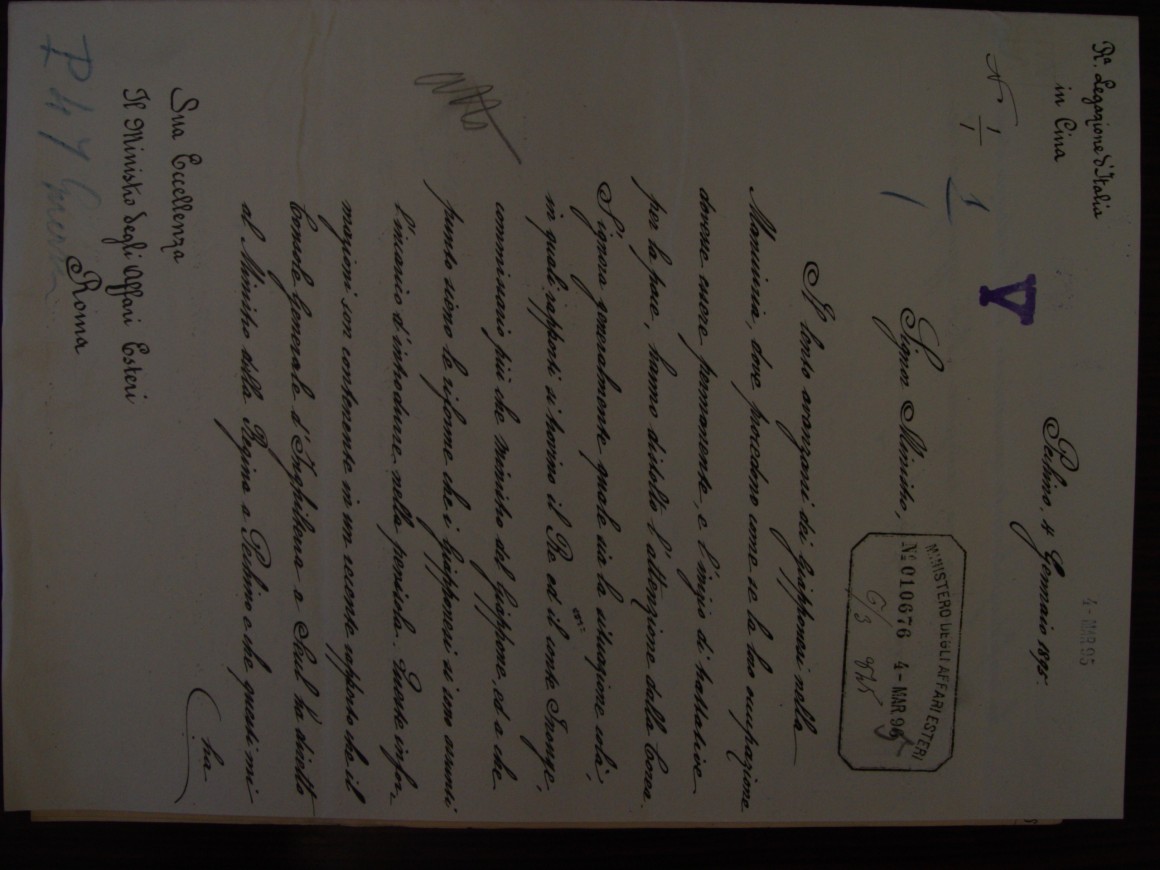 Ra. Legazione d'Italia
in Cina
4-MAR 95
Pechino, 4 Gennaio 1895.
N 1/1
1
1
V
Signor Ministro,
MINISTERO DEGLI AFFARI ESTERI
No 010676 4-MAR 95
6/3 95
Il lento avanzarsi dei Giapponesi nella
Manciuria, dove procedono come se la loro occupazione
dovesse essere permanente, e l'invio di trattative
per la pace, hanno distolto l'attenzione dalla Corea.
S'ignora generalmente quale sia la situazione colà,
in quali rapporti si trovino il Re ed il conte Inouye,
commissario più che ministro del Giappone, ed a che
punto siano le riforme che i Giapponesi si sono assunti
l'incarico d'introdurre nella penisola. Queste infor-
mazioni son contenute in un recente rapporto che il
Console Generale d'Inghilterra a Seul ha diretto
al Ministro della Regina a Pechino e che questi mi
ha
Sua Eccellenza
Il Ministro degli Affari Esteri
Roma